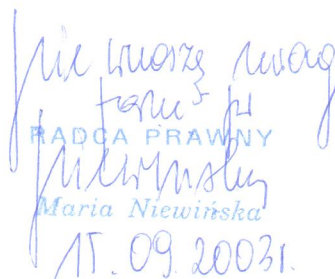 Nie wnoszę uwag
RADCA PRAWNY
Maria Niewińska
15.09.2003r.